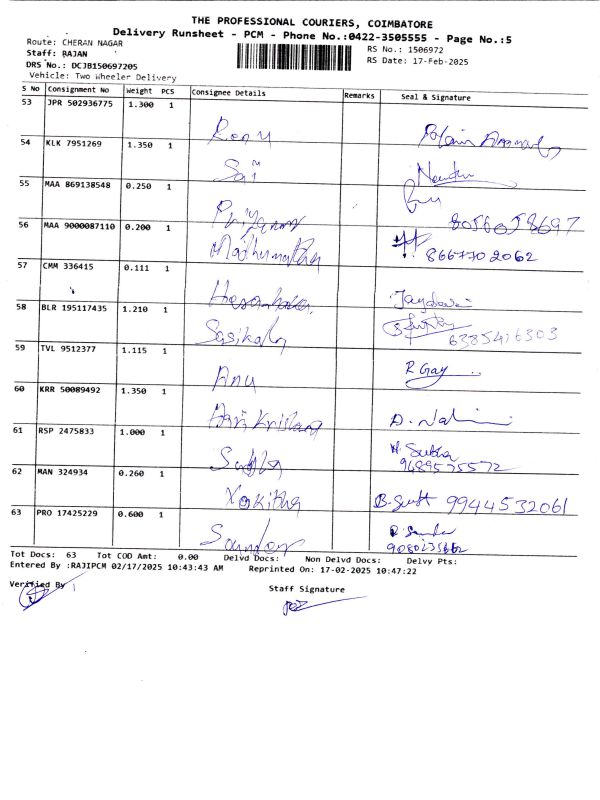 THE PROFESSIONAL COURIERS, COIMBATORE
Delivery Runsheet - PCM - Phone No.:0422-3505555 - Page No.:5
Route: CHERAN NAGAR
RS No.: 1506972
Staff: RAJAN
RS Date: 17-Feb-2025
DRS No.: DCJB150697205
Vehicle: Two Wheeler Delivery
S No Consignment No Weight PCS Consignee Details Remarks Seal & Signature
53 JPR 502936775 1.300 1
Renu
54 KLK 7951269 1.350 1
Sai
55 MAA 869138548 0.250 1
8056058697
56 MAA 9000087110 0.200 1
Madhumitha 8667702062
57 CMM 336415 0.111 1
58 BLR 195117435 1.210 1
Sasikala
59 TVL 9512377 1.115 1
Anu R Gay
60 KRR 50089492 1.350 1
Hari Krishna
61 RSP 2475833 1.000 1
62 MAN 324934 0.260 1
9944532061
63 PRO 17425229 0.600 1
Sundar
Tot Docs: 63 Tot COD Amt: 0.00 Delvd Docs: Non Delvd Docs: Delvy Pts:
Entered By :RAJIPCM 02/17/2025 10:43:43 AM Reprinted On: 17-02-2025 10:47:22
Verified By Staff Signature